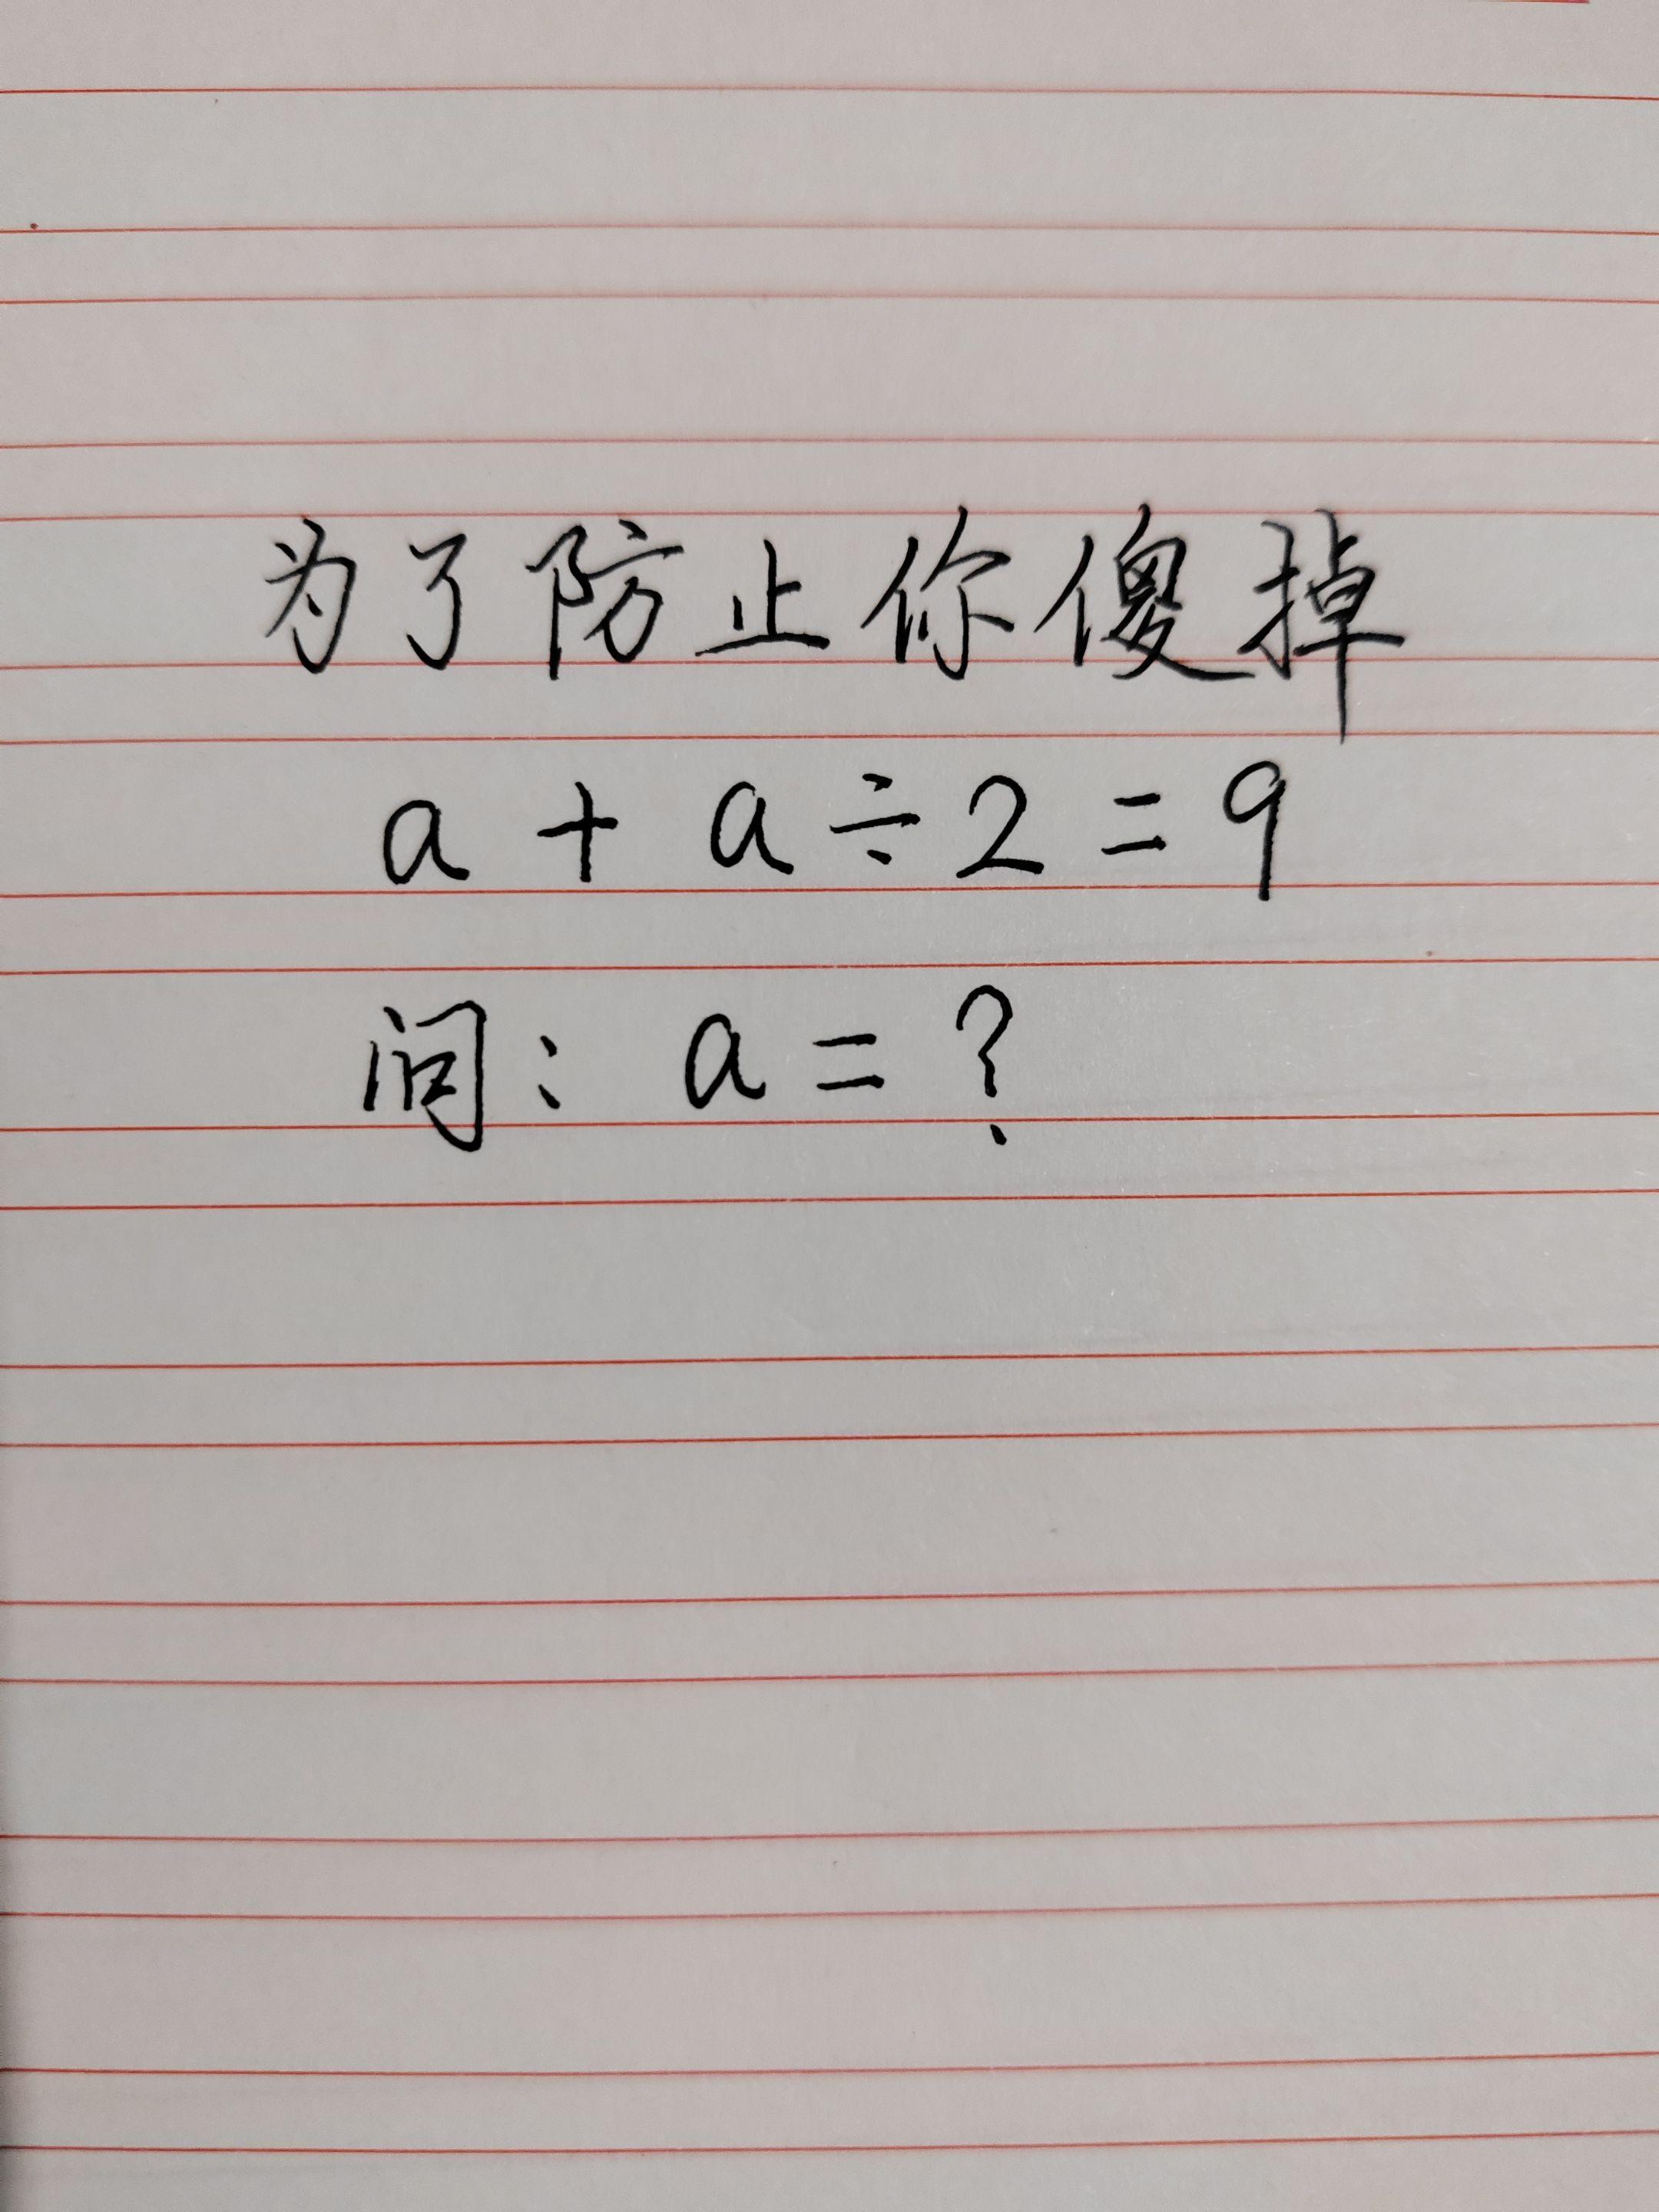 为了防止你傻掉
a + a ÷ 2 = 9
问: a = ?